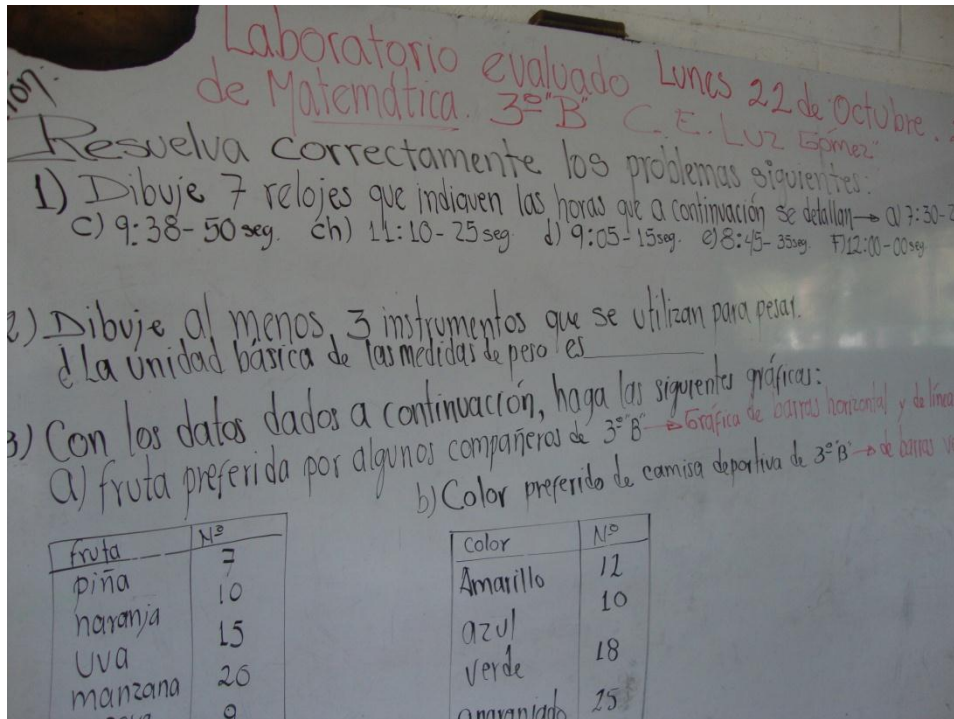 Laboratorio evaluado Lunes 22 de Octubre
de Matemática. 3º "B" C. E. Luz Gómez
Resuelva correctamente los problemas siguientes:
1) Dibuje 7 relojes que indiquen las horas que a continuación se detallan → a) 7:30-2
c) 9:38-50 seg. ch) 11:10-25 seg. d) 9:05-15 seg. e) 8:45-35 seg. F) 12:00-00 seg
2) Dibuje al menos, 3 instrumentos que se utilizan para pesar.
d La unidad básica de las medidas de peso es
3) Con los datos dados a continuación, haga las siguientes gráficas:
a) fruta preferida por algunos compañeros de 3º "B" → Gráfica de barras horizontal y de línea
b) Color preferido de camisa deportiva de 3º "B" → de barras
fruta Nº
piña 7
naranja 10
uva 15
manzana 20
9
Color Nº
Amarillo 12
azul 10
verde 18
anaranjado 25